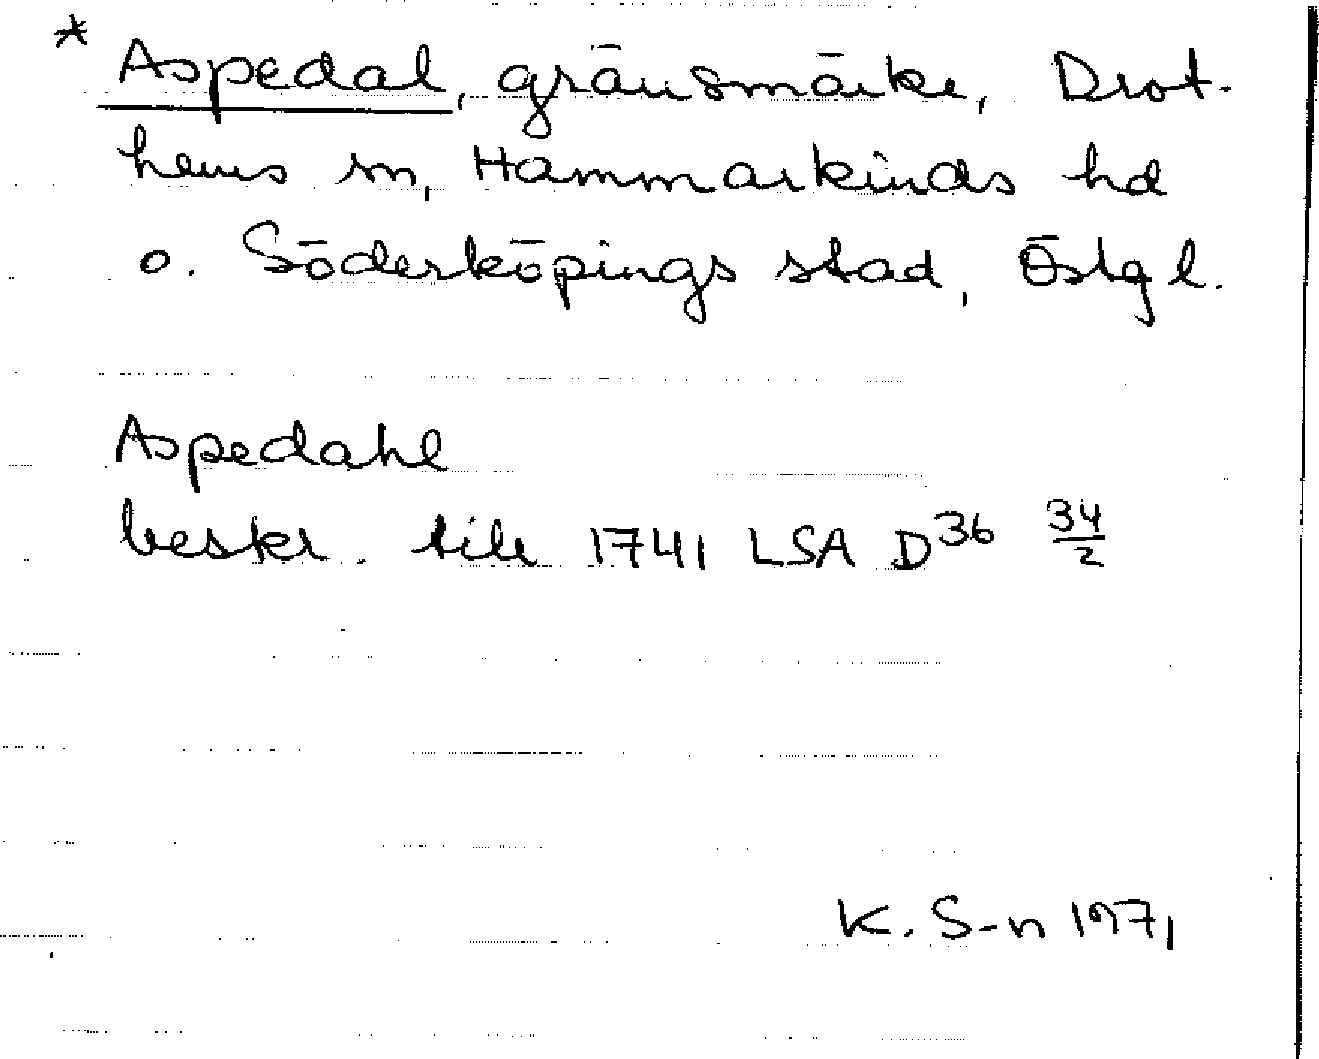 * Aspedal, gränsmärke, Drot-
hems sn, Hammarkinds hd
o. Söderköpings stad, Östgl.
Aspedahl
beskr. till 1741 LSA D36 34/2
K. S-n 1971